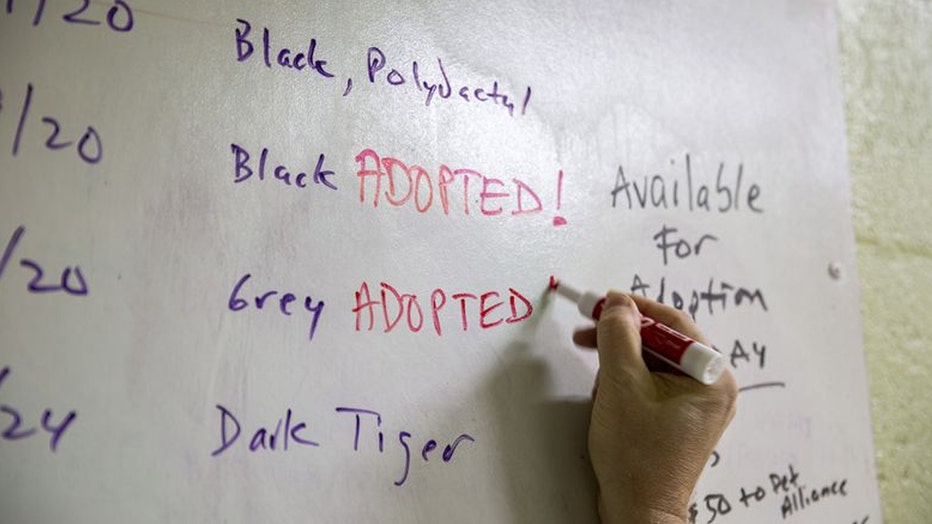 /20
Black, Polydactyl
/20
Black ADOPTED!
/20
Grey ADOPTED
/24
Dark Tiger
Available
For
Adoption
Ay
$50 to Pet
Alliance